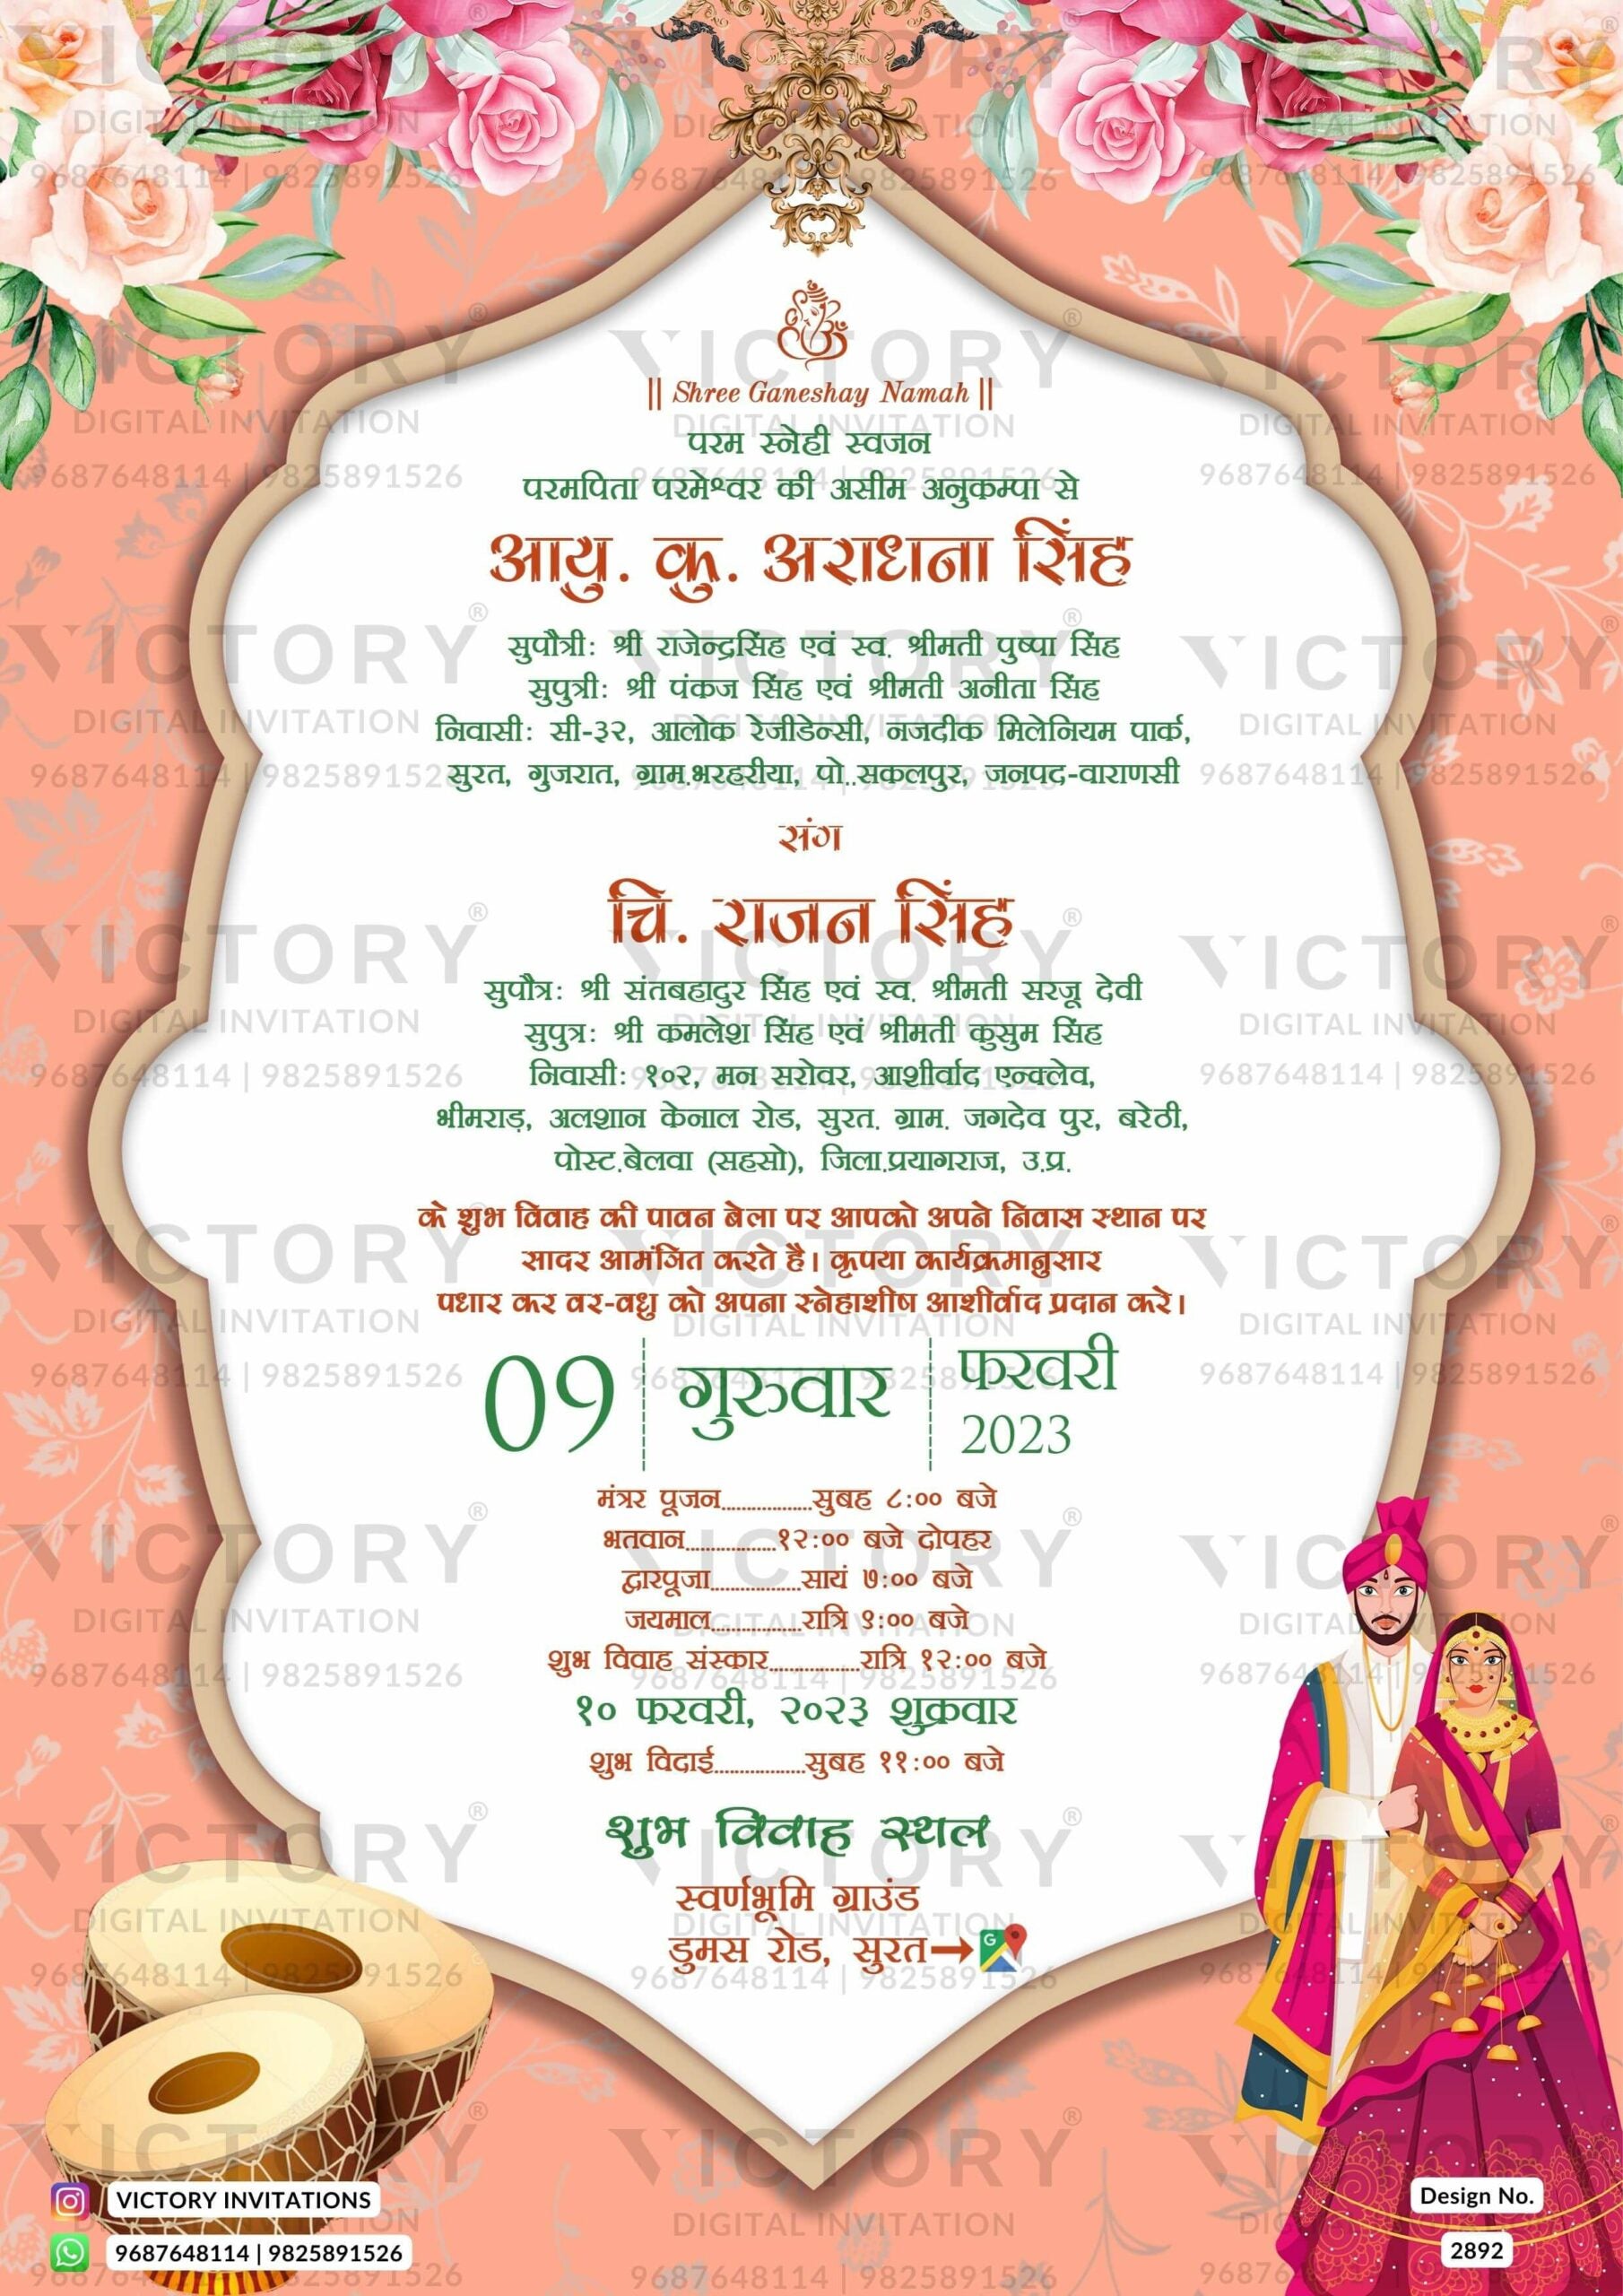 || Shree Ganeshay Namah ||
परम स्नेही स्वजन
परमपिता परमेश्वर की असीम अनुकम्पा से
आयु. कु. अराधना सिंह
सुपौत्री: श्री राजेन्द्रसिंह एवं स्व. श्रीमती पुष्पा सिंह
सुपुत्री: श्री पंकज सिंह एवं श्रीमती अनीता सिंह
निवासी: सी-३२, आलोक रेजीडेन्सी, नजदीक मिलेनियम पार्क,
सुरत, गुजरात, ग्राम.भरहरीया, पो..सकलपुर, जनपद-वाराणसी
संग
चि. राजन सिंह
सुपौत्र: श्री संतबहादुर सिंह एवं स्व. श्रीमती सरजू देवी
सुपुत्र: श्री कमलेश सिंह एवं श्रीमती कुसुम सिंह
निवासी: १०२, मन सरोवर, आशीर्वाद एन्क्लेव,
भीमराड़, अलशान केनाल रोड, सुरत. ग्राम. जगदेव पुर, बरेठी,
पोस्ट.बेलवा (सहसो), जिला.प्रयागराज, उ.प्र.
के शुभ विवाह की पावन बेला पर आपको अपने निवास स्थान पर
सादर आमंत्रित करते है। कृपया कार्यक्रमानुसार
पधार कर वर-वधु को अपना स्नेहाशीष आशीर्वाद प्रदान करे।
09 गुरुवार फरवरी
2023
मंत्रर पूजन..................सुबह ८:०० बजे
भतवान..................१२:०० बजे दोपहर
द्वारपूजा..................सायं ७:०० बजे
जयमाल..................रात्रि ९:०० बजे
शुभ विवाह संस्कार..................रात्रि १२:०० बजे
१० फरवरी, २०२३ शुक्रवार
शुभ विदाई..................सुबह ११:०० बजे
शुभ विवाह स्थल
स्वर्णभूमि ग्राउंड
डुमस रोड, सुरत
VICTORY INVITATIONS
9687648114 | 9825891526
Design No.
2892
VICTORY®
DIGITAL INVITATION
9687648114 | 9825891526